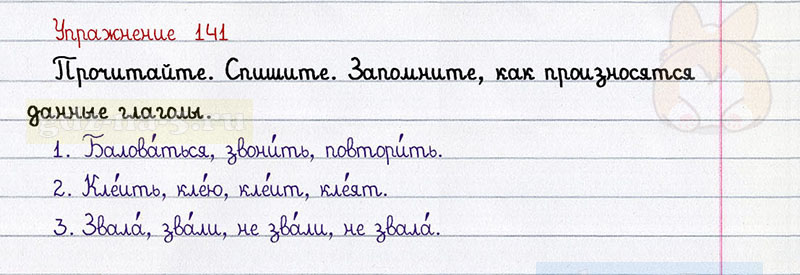 Упражнение 141
Прочитайте. Спишите. Запомните, как произносятся
данные глаголы.
1. Балова́ться, звони́ть, повтори́ть.
2. Кле́ить, кле́ю, кле́ит, кле́ят.
3. Звала́, зва́ли, не зва́ли, не звала́.